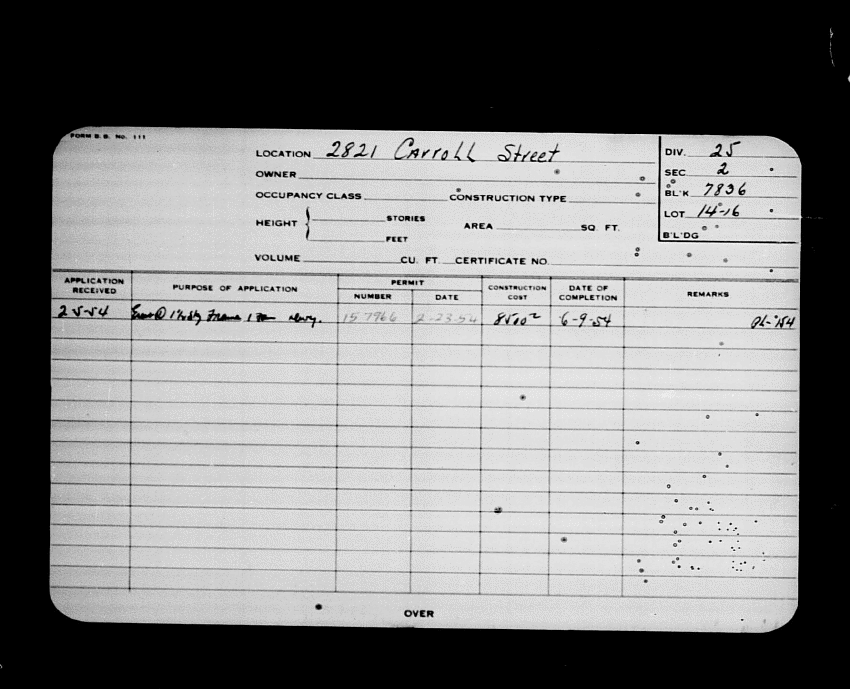 FORM B. B. No. 111
LOCATION 2821 Carroll Street
DIV. 25
OWNER
SEC 2
OCCUPANCY CLASS CONSTRUCTION TYPE
BL'K 7836
HEIGHT { STORIES AREA SQ. FT.
FEET
LOT 14-16
B'L'DG
VOLUME CU. FT. CERTIFICATE NO.
APPLICATION RECEIVED PURPOSE OF APPLICATION PERMIT CONSTRUCTION COST DATE OF COMPLETION REMARKS
NUMBER DATE
2-5-54 Frame 1 157966 2-23-54 8500 6-9-54
OVER